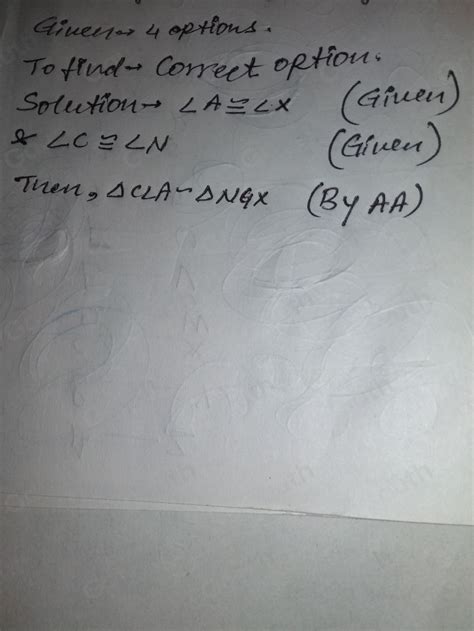 Given→ 4 options.
To find→ Correct option.
Solution→ ∠A≅∠X (Given)
& ∠C≅∠N (Given)
Then, △CLA~△NGX (By AA)